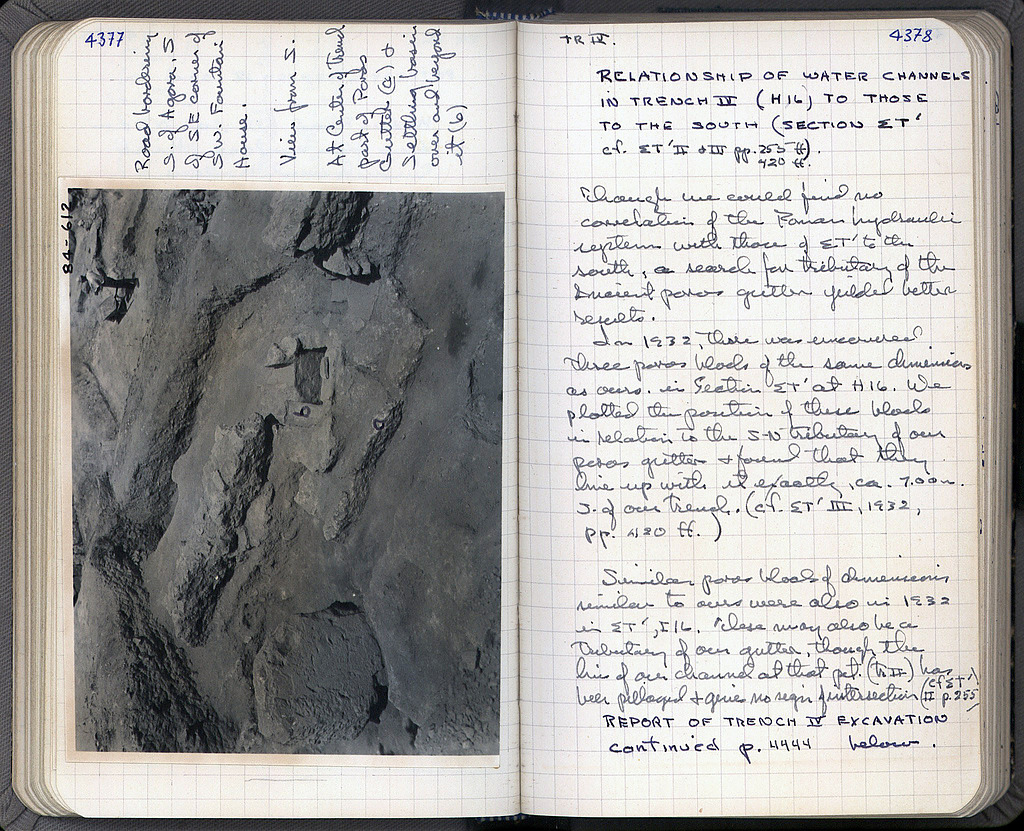 4377
Road bordering
S. of Agora, S
of SE corner of
S.W. Fountain
House.
View from S.
At Center of Trench
part of Poros
Gutter (a) +
Settling basin
over and beyond
it (b)
84-612
b
a
TR IV.
4378
RELATIONSHIP OF WATER CHANNELS
IN TRENCH IV (H16) TO THOSE
TO THE SOUTH (SECTION ΣΤ'
cf. ΣΤ' II + III pp. 255 ff).
420 ff.
Though we could find no
correlation of the Roman hydraulic
systems with those of ΣΤ' to the
south, a search for tributary of the
Ancient poros gutter yielded better
results.
In 1932, there was uncovered
three poros blocks of the same dimensions
as ours in Section ΣΤ' at H16. We
plotted the position of these blocks
in relation to the S-N tributary of our
poros gutter + found that they
line up with it exactly, ca. 7.00 m.
S. of our trench. (cf. ΣΤ' III, 1932,
pp. 420 ff.)
Similar poros blocks of dimensions
similar to ours were also in 1932
in ΣΤ', I16. These may also be a
tributary of our gutter, though the
line of our channel at that pt. (Tr II) has
been pillaged + gives no sign of intersection (cf ΣΤ'
II p. 255)
REPORT OF TRENCH IV EXCAVATION
continued p. 4444 below.